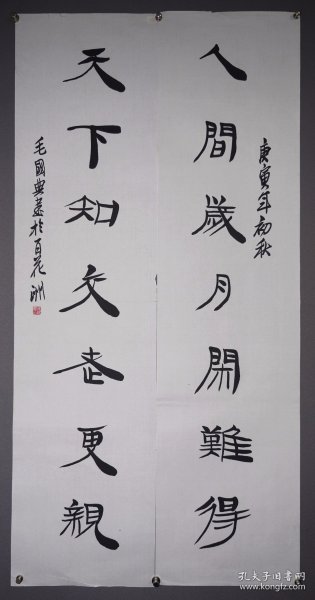 庚寅年初秋
人間歲月閑難得
天下知交老更親
毛國典書於百花洲
孔夫子旧书网